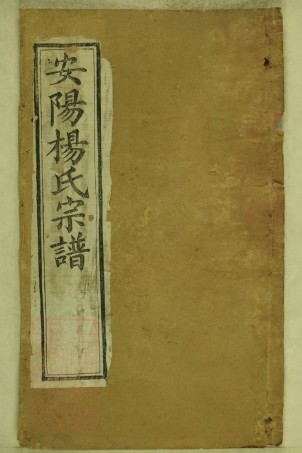 安陽楊氏宗譜